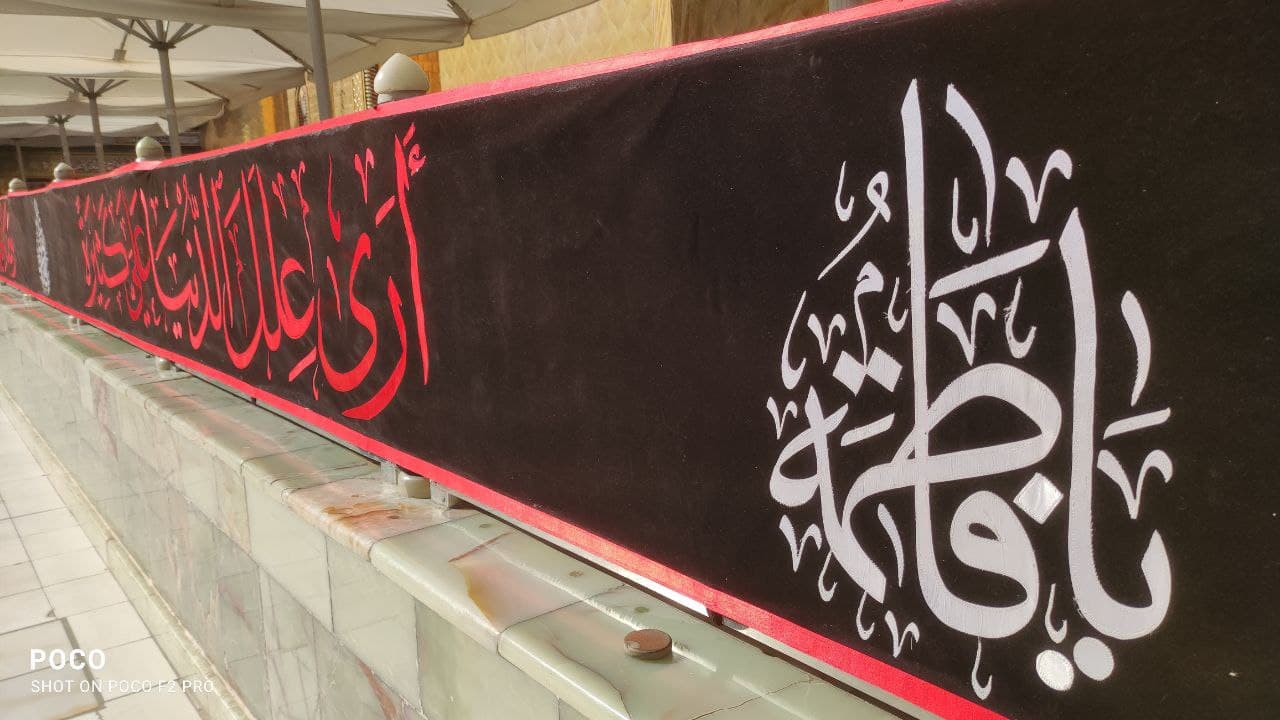 يا فاطمة
أَرىٰ عِلَلَ الدُّنيا عَلَيَّ كَثيرَةً
POCO
SHOT ON POCO F2 PRO